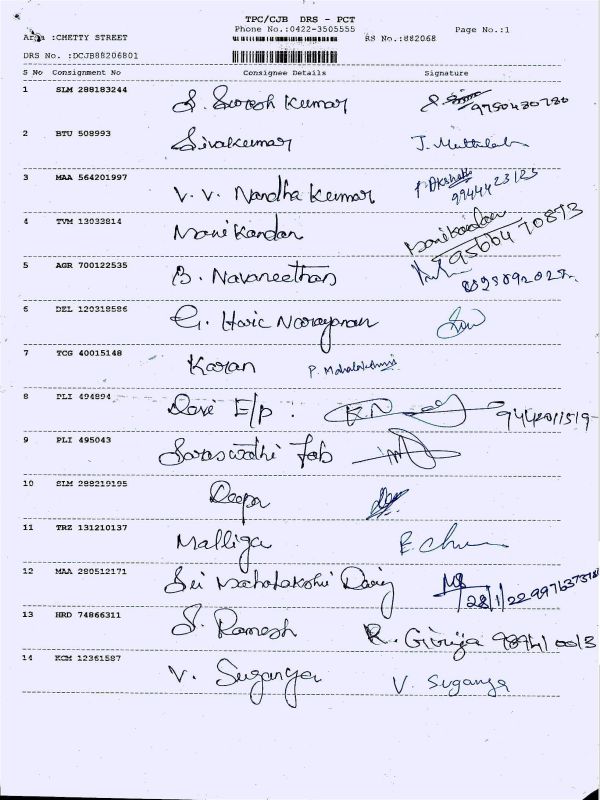 TPC/CJB DRS - PCT
Phone No.:0422-3505555 Page No.:1
Area :CHETTY STREET RS No.:882068
DRS No. :DCJB88206801
S No Consignment No Consignee Details Signature
1 SLM 288183244 S. Suresh Kumar 9750430780
2 BTU 508993 Sivakumar J. Muttulak
3 MAA 564201997 V. V. Nandha Kumar 9944423125
4 TVM 13033814 Manikandan Manikandan 9566470873
5 AGR 700122535 B. Navaneethan
6 DEL 120318586 G. Haric Narayanan
7 TCG 40015148 Karan P. Mahalakshmi
8 PLI 494894 Devi E/p. 9442011519
9 PLI 495043 Saraswathi Fab
10 SLM 288219195 Deepa
11 TRZ 131210137 Malliga
12 MAA 280512171 Sri Mahalakshi Dairy 28/1/22
13 HRD 74866311 S. Ramesh R. Girija
14 KCM 12361587 V. Suganya V. Suganya